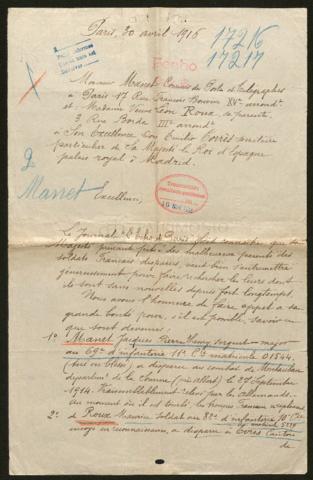 Paris, 30 avril 1916
17216
17217
Monsieur Manet Commis des Postes et Télégraphes
à Paris 17 Rue François Bonvin XVe arrondt
et Madame Veuve Léon Roux, sa parente
3, Rue Borda IIIe arrondt
à Son Excellence Don Emilio Torrès
particulier de Sa Majesté le Roi d'Espagne
palais royal à Madrid.
2
Manet
Excellence,
Le Journal l'Echo de Paris fait connaître que Sa
Majesté prenant pitié des malheureux parents des
soldats Français disparus, veut bien s'entremettre
généreusement pour faire rechercher les leurs dont
ils sont sans nouvelles depuis fort longtemps.
Nous avons l'honneur de faire appel à sa
grande bonté pour, s'il est possible, savoir ce
que sont devenus:
1o Manet Jacques Pierre Henry sergent-major
au 69e d'infanterie 11e Cie matricule 01544
(tué ou blessé), a disparu au combat de
département de la Somme (près Albert) le 27 Septembre
1914. Vraisemblablement relevé par les allemands.
Au moment où il est tombé, les troupes Françaises se repliaient
2o de Roux Maurice soldat au 82e d'infanterie 10e Cie
matricule
envoyé en reconnaissance, a disparu à
de